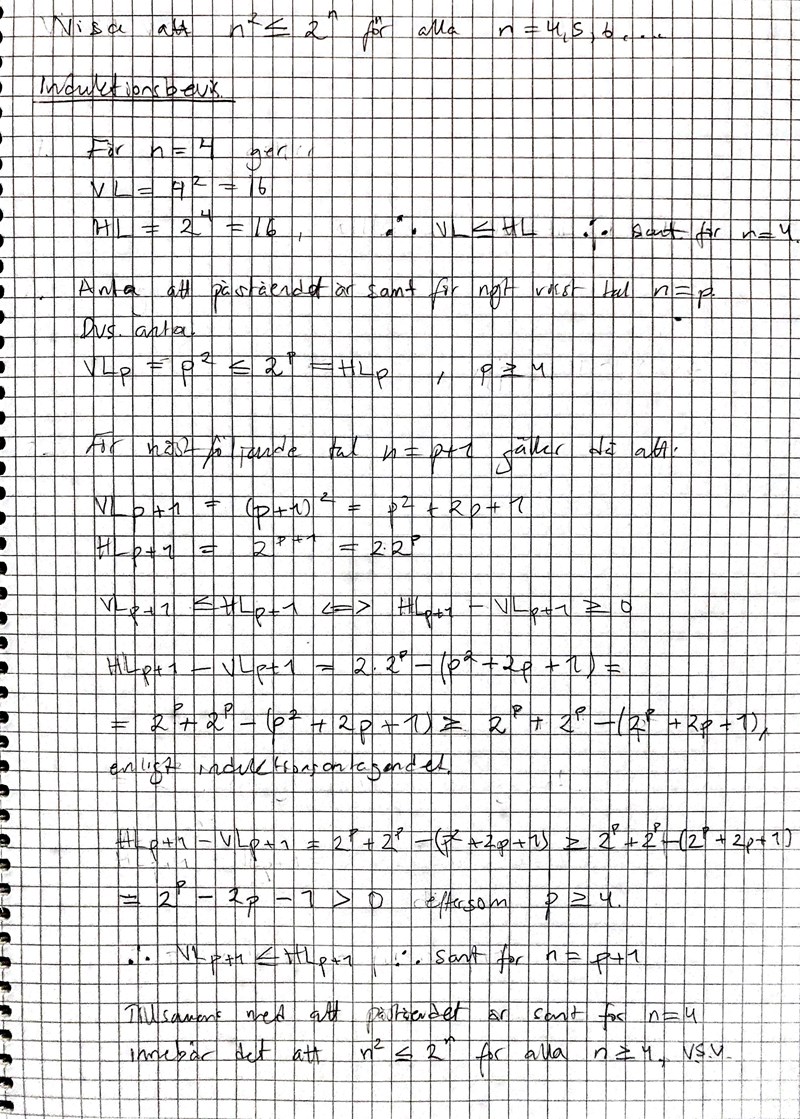 Visa att n² ≤ 2ⁿ för alla n = 4, 5, 6, ...
Induktionsbevis.
För n = 4 ger
VL = 4² = 16
HL = 2⁴ = 16, ∴ VL ≤ HL ∴ sant för n = 4.
Anta att påståendet är sant för ngt visst tal n = p.
Dvs. anta.
VLp = p² ≤ 2ᵖ = HLp , p ≥ 4
För nästföljande tal n = p+1 gäller då att:
VLp+1 = (p+1)² = p² + 2p + 1
HLp+1 = 2ᵖ⁺¹ = 2·2ᵖ
VLp+1 ≤ HLp+1 <=> HLp+1 - VLp+1 ≥ 0
HLp+1 - VLp+1 = 2·2ᵖ - (p² + 2p + 1) =
= 2ᵖ + 2ᵖ - (p² + 2p + 1) ≥ 2ᵖ + 2ᵖ - (2ᵖ + 2p + 1),
enligt induktionsantagandet.
HLp+1 - VLp+1 = 2ᵖ + 2ᵖ - (p² + 2p + 1) ≥ 2ᵖ + 2ᵖ - (2ᵖ + 2p + 1)
= 2ᵖ - 2p - 1 > 0 eftersom p ≥ 4.
∴ VLp+1 ≤ HLp+1 ∴ sant för n = p+1
Tillsamans med att påståendet är sant för n = 4
innebär det att n² ≤ 2ⁿ för alla n ≥ 4, V.S.V.